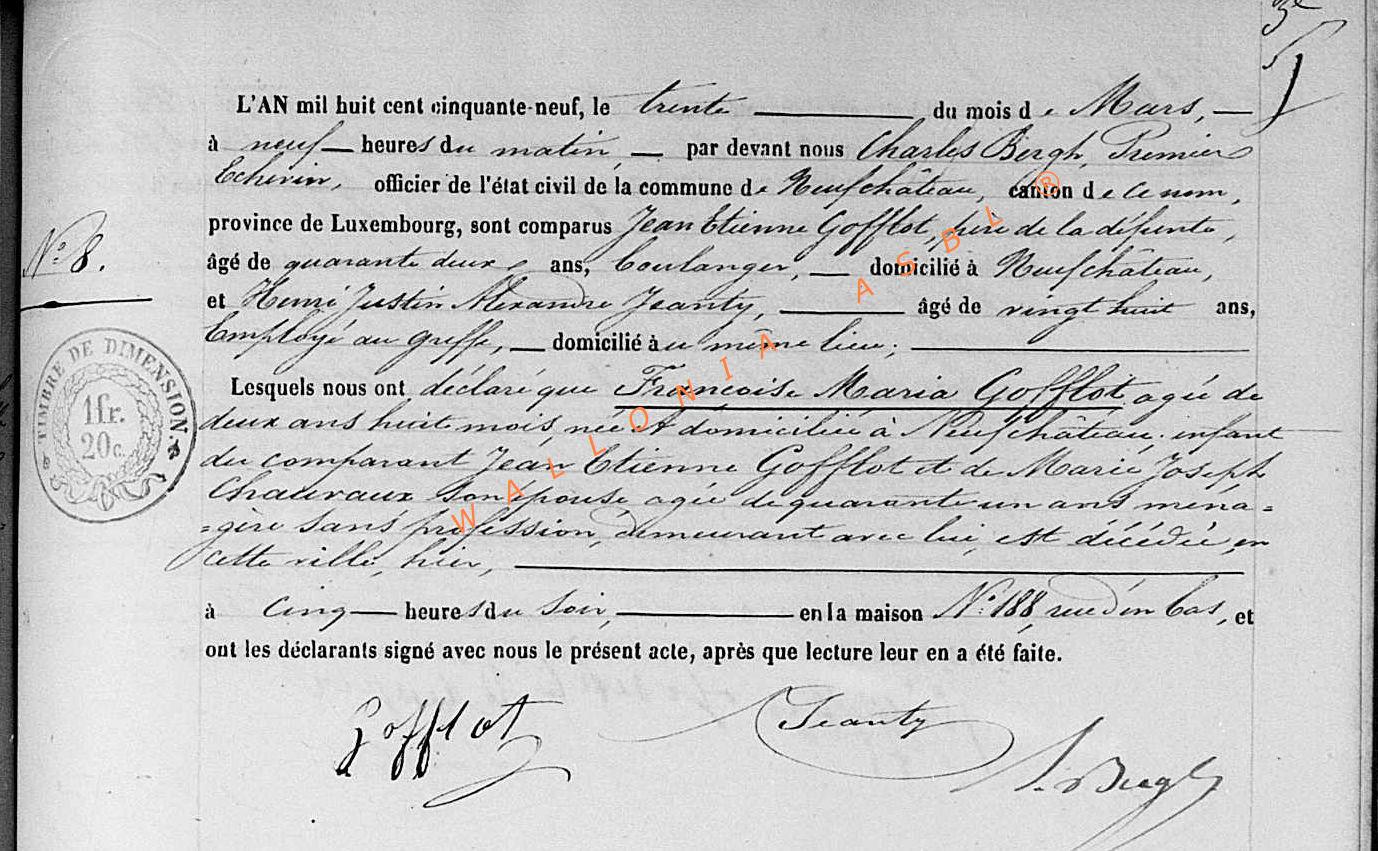 3e
L'AN mil huit cent cinquante-neuf, le trente du mois de Mars,
à neuf heures du matin, par devant nous Charles Bergh, Premier
Echevin, officier de l'état civil de la commune de Neufchâteau, canton de ce nom,
province de Luxembourg, sont comparus Jean Etienne Gofflot, père de la défunte,
N.o 8.
âgé de quarante deux ans, boulanger, domicilié à Neufchâteau,
et Henri Justin Alexandre Jeanty, âgé de vingt huit ans,
Employé au greffe, domicilié au même lieu;
Lesquels nous ont déclaré que Francoise Maria Gofflot agée de
deux ans huit mois née et domiciliée à Neufchâteau, enfant
du comparant Jean Etienne Gofflot et de Marie Joseph
Chauvaux son épouse agée de quarante un ans ména=
=gère sans profession, demeurant avec lui, est décédée, en
cette ville, hier,
à cinq heures du soir, en la maison N.o 188, rue d'en bas, et
ont les déclarants signé avec nous le présent acte, après que lecture leur en a été faite.
Gofflot Jeanty
TIMBRE DE DIMENSION.
1fr.
20c.
WALLONIA ASBL ®